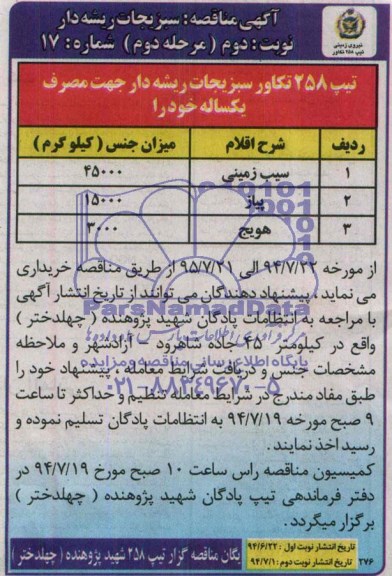 آگهی مناقصه: سبزیجات ریشه دار
نوبت: دوم ( مرحله دوم ) شماره: ۱۷
نیروی زمینی
تیپ ۲۵۸ تکاور
تیپ ۲۵۸ تکاور سبزیجات ریشه دار جهت مصرف
یکساله خود را
ردیف شرح اقلام میزان جنس ( کیلو گرم )
۱ سیب زمینی ۴۵۰۰۰
۲ پیاز ۱۵۰۰۰
۳ هویج ۳۰۰۰
از مورخه ۹۴/۷/۲۲ الی ۹۵/۷/۲۱ از طریق مناقصه خریداری
می نماید ، پیشنهاد دهندگان می توانند از تاریخ انتشار آگهی
با مراجعه به انتظامات پادگان شهید پژوهنده ( چهلدختر )
واقع در کیلومتر ۴۵ جاده شاهرود - آزادشهر و ملاحظه
مشخصات جنس و دریافت شرایط معامله ، پیشنهاد خود را
طبق مفاد مندرج در شرایط معامله تنظیم و حداکثر تا ساعت
۹ صبح مورخه ۹۴/۷/۱۹ به انتظامات پادگان تسلیم نموده و
رسید اخذ نمایند .
کمیسیون مناقصه راس ساعت ۱۰ صبح مورخ ۹۴/۷/۱۹ در
دفتر فرماندهی تیپ پادگان شهید پژوهنده ( چهلدختر )
برگزار میگردد .
تاریخ انتشار نوبت اول : ۹۴/۶/۲۲
تاریخ انتشار نوبت دوم : ۹۴/۷/۱
۲۷۶
یگان مناقصه گزار تیپ ۲۵۸ شهید پژوهنده ( چهلدختر )
ParsNamadData
پایگاه اطلاع رسانی مناقصه و مزایده
۰۲۱-۸۸۳۴۹۶۷۰-۵